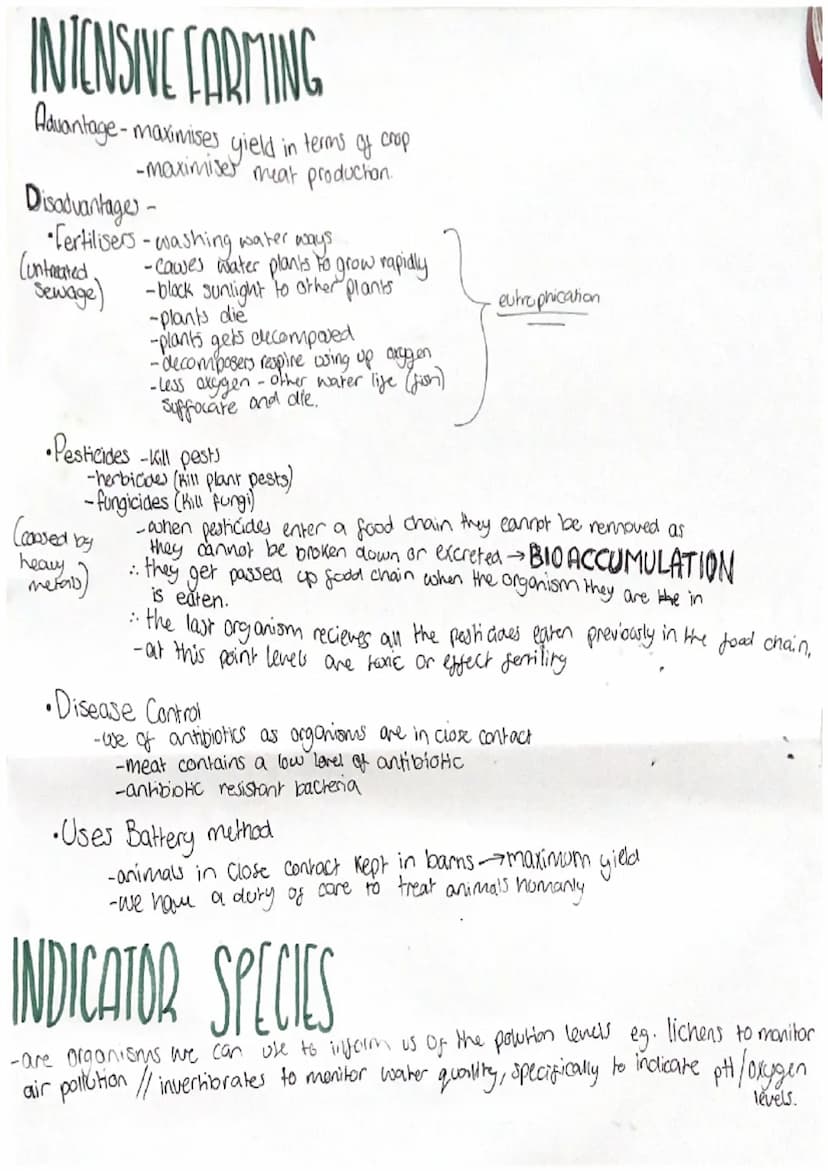 INTENSIVE FARMING
Advantage - maximises yield in terms of crop
- maximises meat production.
Disadvantages -
• Fertilisers - washing water ways
(untreated sewage)
- causes water plants to grow rapidly
- block sunlight to other plants
- plants die
- plants gets decomposed
- decomposers respire using up oxygen
- Less oxygen - other water life (fish)
suffocate and die.
eutrophication
• Pesticides - kill pests
- herbicides (kill plant pests)
- fungicides (kill fungi)
(caused by heavy metals)
- when pesticides enter a food chain they cannot be removed as
they cannot be broken down or excreted → BIOACCUMULATION
∴ they get passed up food chain when the organism they are the in
is eaten.
∴ the last organism recieves all the pesticides eaten previously in the food chain,
- at this point levels are toxic or effect fertility
• Disease Control
- use of antibiotics as organisms are in close contact
- meat contains a low level of antibiotic
- antibiotic resistant bacteria
• Uses Battery method
- animals in close contact kept in barns → maximum yield
- we have a duty of care to treat animals humanly
INDICATOR SPECIES
- are organisms we can use to inform us of the polution levels eg. lichens to monitor
air pollution // invertibrates to monitor water quality, specifically to indicate pH/oxygen
levels.